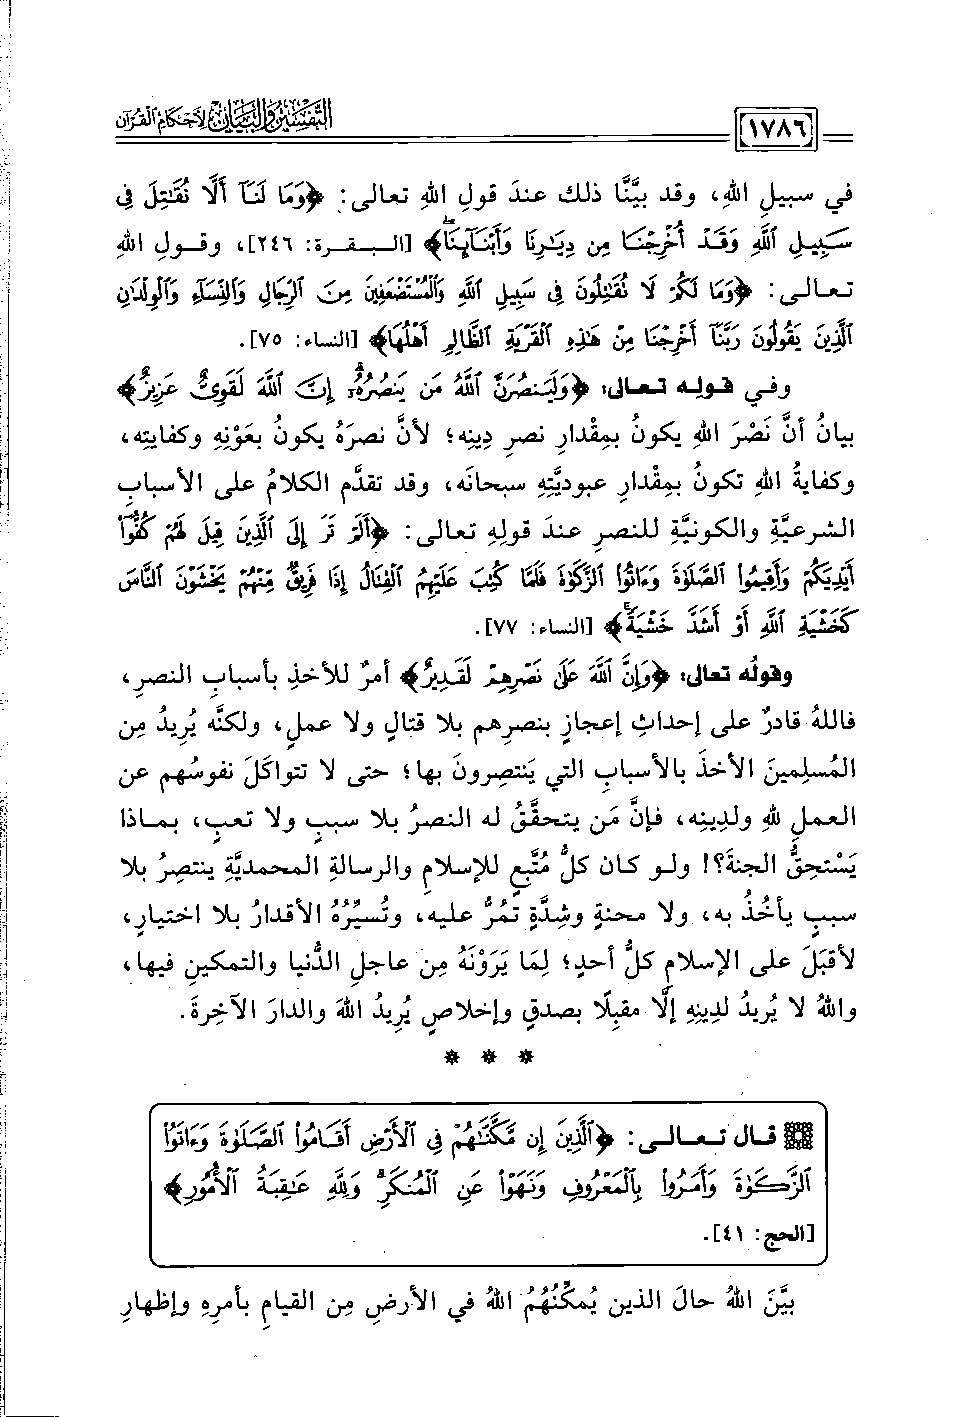 التفسير والبيان لأحكام القرآن
١٧٨٦
في سبيلِ اللهِ، وقد بيَّنَّا ذلك عندَ قولِ اللهِ تعالى: ﴿وَمَا لَنَآ أَلَّا نُقَٰتِلَ فِى
سَبِيلِ ٱللَّهِ وَقَدْ أُخْرِجْنَا مِن دِيَٰرِنَا وَأَبْنَآئِنَاۖ﴾ [البقرة: ٢٤٦]، وقولِ اللهِ
تعالى: ﴿وَمَا لَكُمْ لَا تُقَٰتِلُونَ فِى سَبِيلِ ٱللَّهِ وَٱلْمُسْتَضْعَفِينَ مِنَ ٱلرِّجَالِ وَٱلنِّسَآءِ وَٱلْوِلْدَٰنِ
ٱلَّذِينَ يَقُولُونَ رَبَّنَآ أَخْرِجْنَا مِنْ هَٰذِهِ ٱلْقَرْيَةِ ٱلظَّالِمِ أَهْلُهَا﴾ [النساء: ٧٥].
وفي قوله تعالى: ﴿وَلَيَنصُرَنَّ ٱللَّهُ مَن يَنصُرُهُۥٓۗ إِنَّ ٱللَّهَ لَقَوِىٌّ عَزِيزٌ﴾
بيانُ أنَّ نَصْرَ اللهِ يكونُ بمِقْدارِ نصرِ دِينِه؛ لأنَّ نصرَهُ يكونُ بعَوْنِهِ وكفايتِه،
وكفايةُ اللهِ تكونُ بمِقْدارِ عبوديَّتِهِ سبحانَه، وقد تقدَّم الكلامُ على الأسبابِ
الشرعيَّةِ والكونيَّةِ للنصرِ عندَ قولِهِ تعالى: ﴿أَلَمْ تَرَ إِلَى ٱلَّذِينَ قِيلَ لَهُمْ كُفُّوٓا۟
أَيْدِيَكُمْ وَأَقِيمُوا۟ ٱلصَّلَوٰةَ وَءَاتُوا۟ ٱلزَّكَوٰةَ فَلَمَّا كُتِبَ عَلَيْهِمُ ٱلْقِتَالُ إِذَا فَرِيقٌ مِّنْهُمْ يَخْشَوْنَ ٱلنَّاسَ
كَخَشْيَةِ ٱللَّهِ أَوْ أَشَدَّ خَشْيَةًۚ﴾ [النساء: ٧٧].
وقولُه تعالى: ﴿وَإِنَّ ٱللَّهَ عَلَىٰ نَصْرِهِمْ لَقَدِيرٌ﴾ أمرٌ للأخذِ بأسبابِ النصرِ،
فاللهُ قادرٌ على إحداثِ إعجازٍ بنصرِهم بلا قتالٍ ولا عملٍ، ولكنَّه يُرِيدُ مِن
المُسلِمينَ الأخذَ بالأسبابِ التي يَنتصِرونَ بها؛ حتى لا تتواكَلَ نفوسُهم عن
العملِ للهِ ولدِينِه، فإنَّ مَن يتحقَّقُ له النصرُ بلا سببٍ ولا تعبٍ، بماذا
يَسْتحِقُّ الجنةَ؟! ولو كان كلُّ مُتَّبِعٍ للإسلامِ والرسالةِ المحمديَّةِ ينتصِرُ بلا
سببٍ يأخُذُ به، ولا محنةٍ وشِدَّةٍ تمُرُّ عليه، وتُسيِّرُهُ الأقدارُ بلا اختيارٍ،
لأقبَلَ على الإسلامِ كلُّ أحدٍ؛ لِمَا يَرَوْنَهُ مِن عاجلِ الدُّنيا والتمكينِ فيها،
واللهُ لا يُرِيدُ لدِينِهِ إلَّا مقبِلًا بصدقٍ وإخلاصٍ يُرِيدُ اللهَ والدارَ الآخِرةَ.
* * *
قال تعالى: ﴿ٱلَّذِينَ إِن مَّكَّنَّٰهُمْ فِى ٱلْأَرْضِ أَقَامُوا۟ ٱلصَّلَوٰةَ وَءَاتَوُا۟
ٱلزَّكَوٰةَ وَأَمَرُوا۟ بِٱلْمَعْرُوفِ وَنَهَوْا۟ عَنِ ٱلْمُنكَرِۗ وَلِلَّهِ عَٰقِبَةُ ٱلْأُمُورِ﴾
[الحج: ٤١].
بيَّنَ اللهُ حالَ الذين يُمكِّنُهُمُ اللهُ في الأرضِ مِن القيامِ بأمرِهِ وإظهارِ